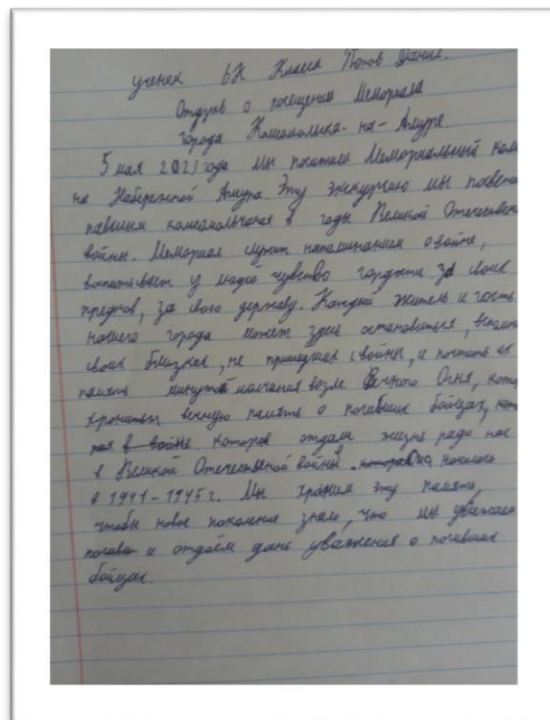 ученик 6К Класса Попов Данил.
Отзыв о посещении Мемориала
города Комсомольска-на-Амуре.
5 мая 2021 года мы посетили Мемориальный ком
на Набережной Амура. Эту экскурсию мы посвети
павшим комсомольчанам в годы Великой Отечествен
войны. Мемориал служит напоминанием о войне,
воспитывает у людей чувство гордости за своих
предков, за свою державу. Каждый житель и гость
нашего города может здесь остановиться, вспомн
своих близких, не пришедших с войны, и почтить их
память минутой молчания возле Вечного Огня, кото
хранитель вечную память о погибших бойцах,
в войне которые отдали жизнь ради нас
в Великой Отечественой войны. она началась
в 1941-1945 г. Мы храним эту память,
чтобы новое поколение знало, что мы уважаем
погибш и отдаём дань уважения о погибших
бойцах.